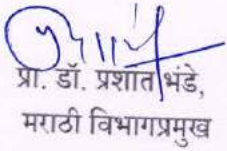 प्रा. डॉ. प्रशांत भंडे,
मराठी विभागप्रमुख